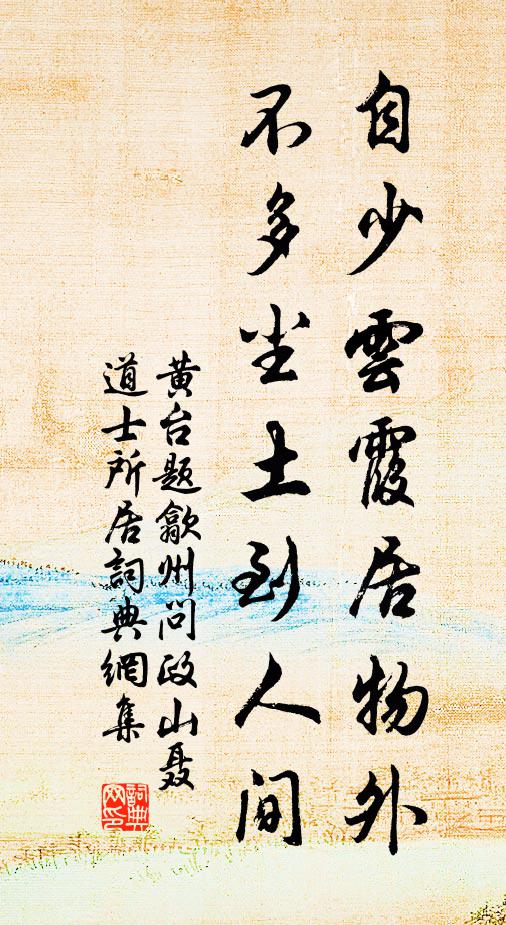 自少雲霞居物外
不多尘土到人间
黄台题歙州问政山聂
道士所居詞典網集
詞典
网印